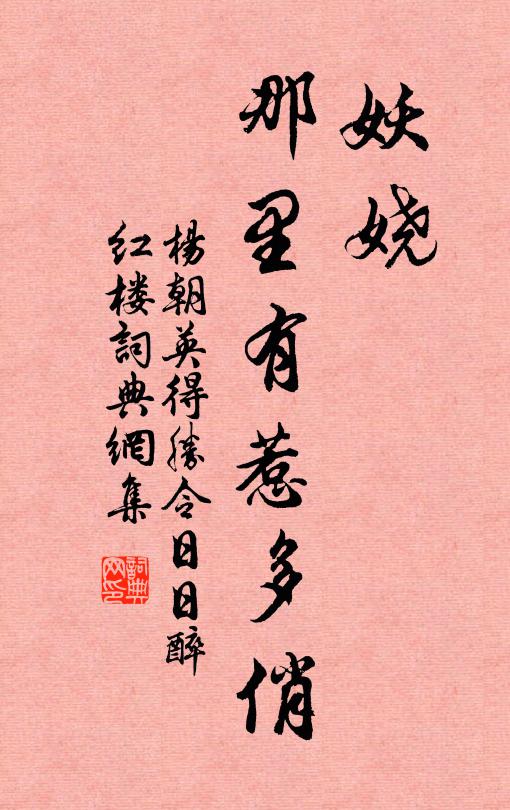 妖娆
那里有惹多俏
杨朝英得勝令日日醉
红楼詞典網集
詞典网印